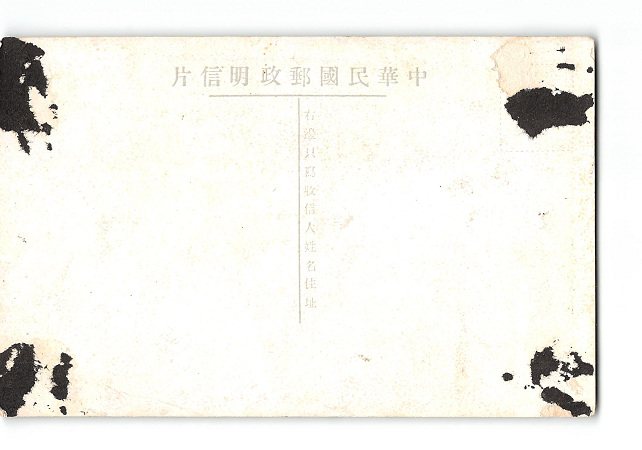 中華民國郵政明信片
右邊只寫收信人姓名住址